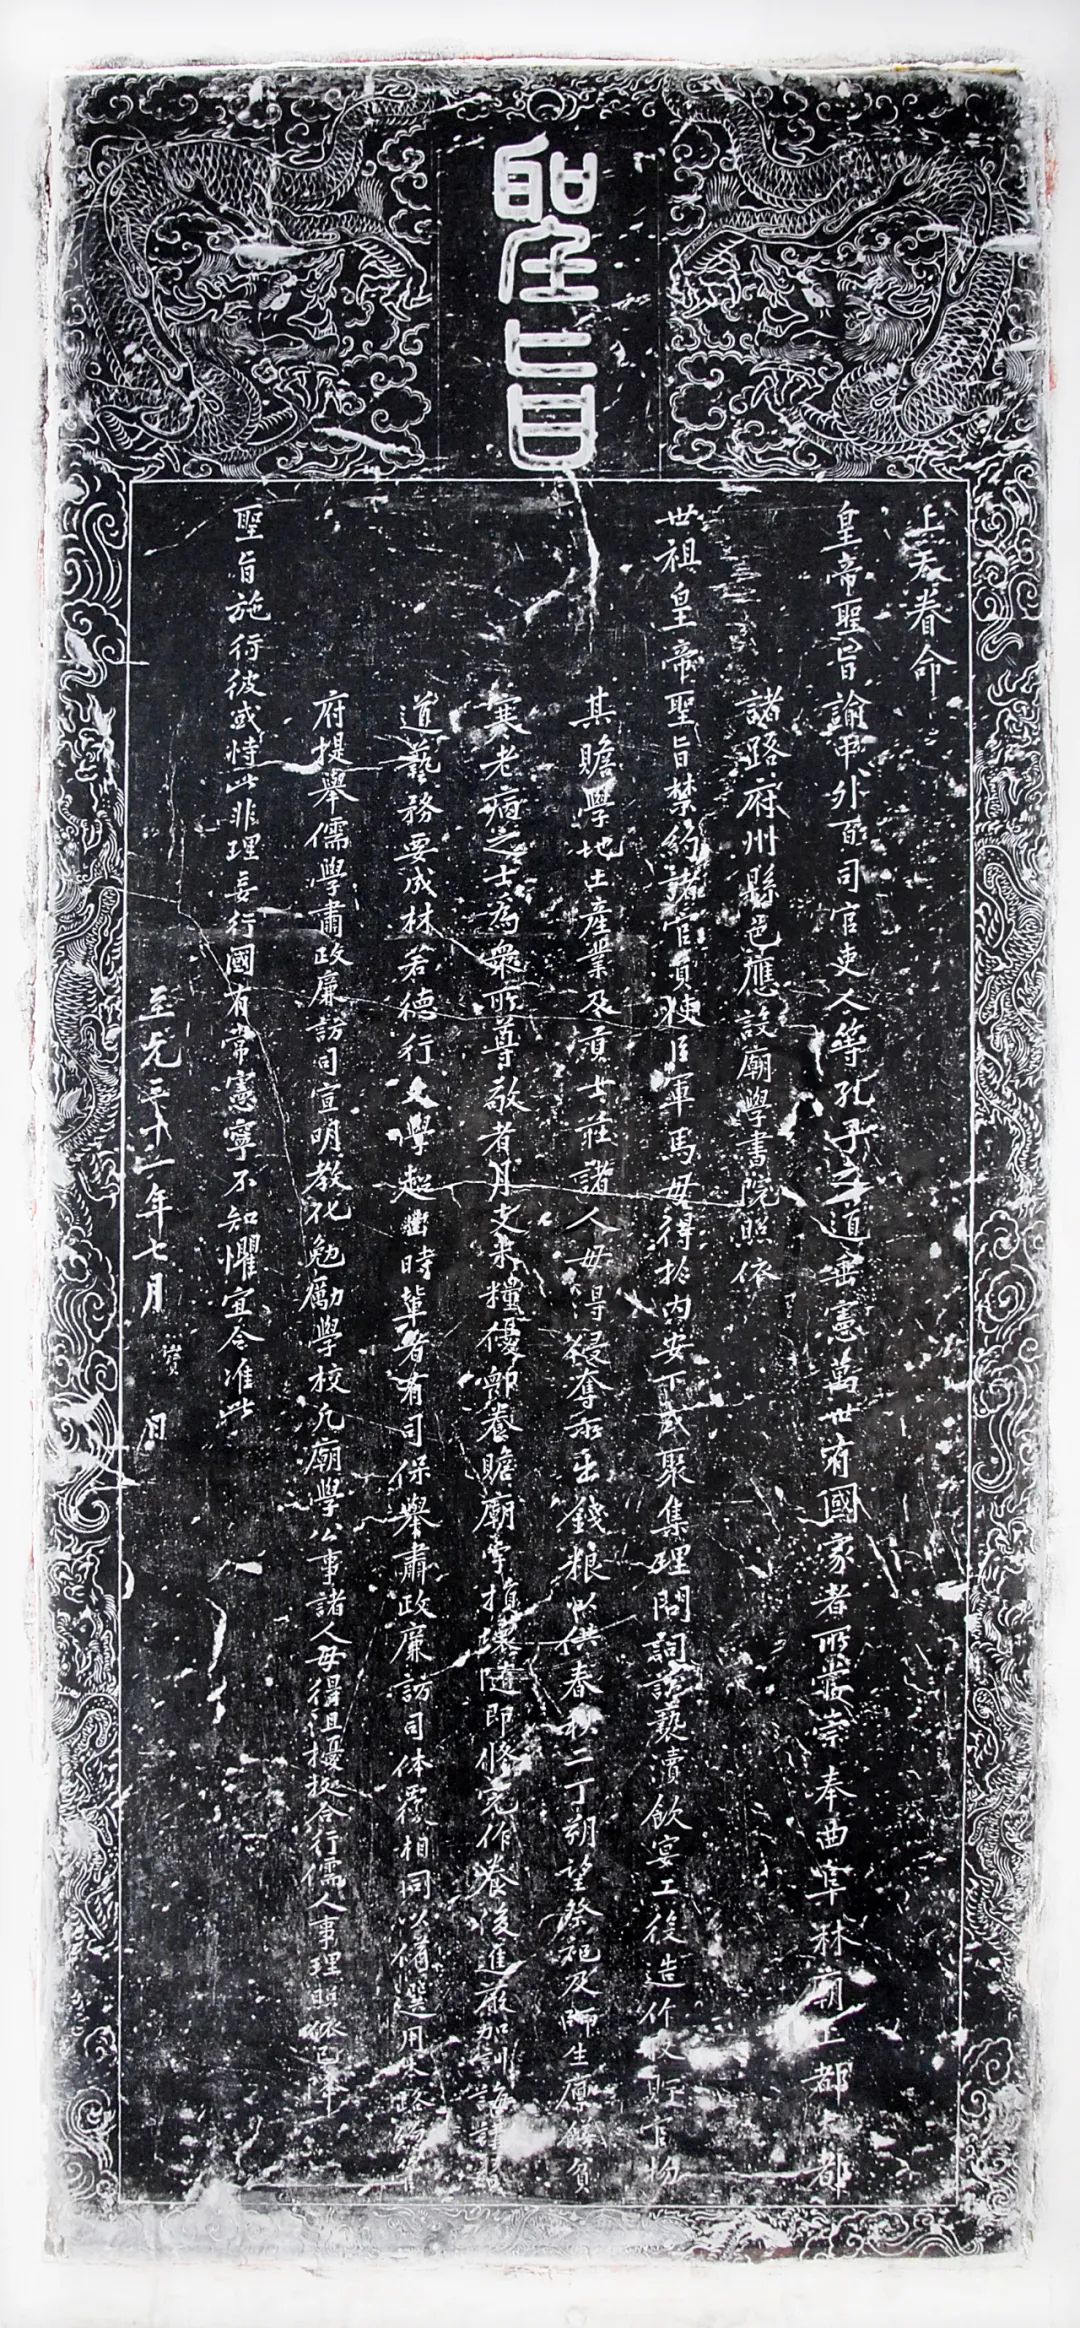 聖旨
上天眷命
皇帝聖旨諭中外百司官吏人等孔子之道垂憲萬世有國家者所當崇奉曲阜林廟上都大都
諸路府州縣邑應設廟學書院照依
世祖皇帝聖旨禁約諸官員使臣軍馬毋得於內安下或聚集理問詞訟褻瀆飲宴工役造作收貯官物
其贍學地土產業及貢士莊諸人毋得侵奪所出錢粮以供春秋二丁朔望祭祀及師生廩餼貧
寒老病之士為衆所尊敬者月支米糧優卹養贍廟宇損壞隨即修完作養後進嚴加訓誨講習
道藝務要成材若德行文學超出時輩者有司保舉肅政廉訪司体覆相同以備選用本路總
府提舉儒學肅政廉訪司宣明教化勉勵學校凡廟學公事諸人毋得沮擾據合行儒人事理照依已降
聖旨施行彼或恃此非理妄行國有常憲寧不知懼宜令准此
至元三十一年七月 寳 日